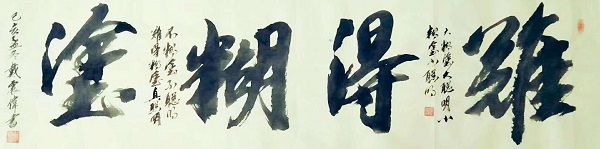 難得糊塗
大糊塗大聰明小
糊塗小聰明
不糊塗不聰明
難得糊塗真聰明
己亥戴偉書